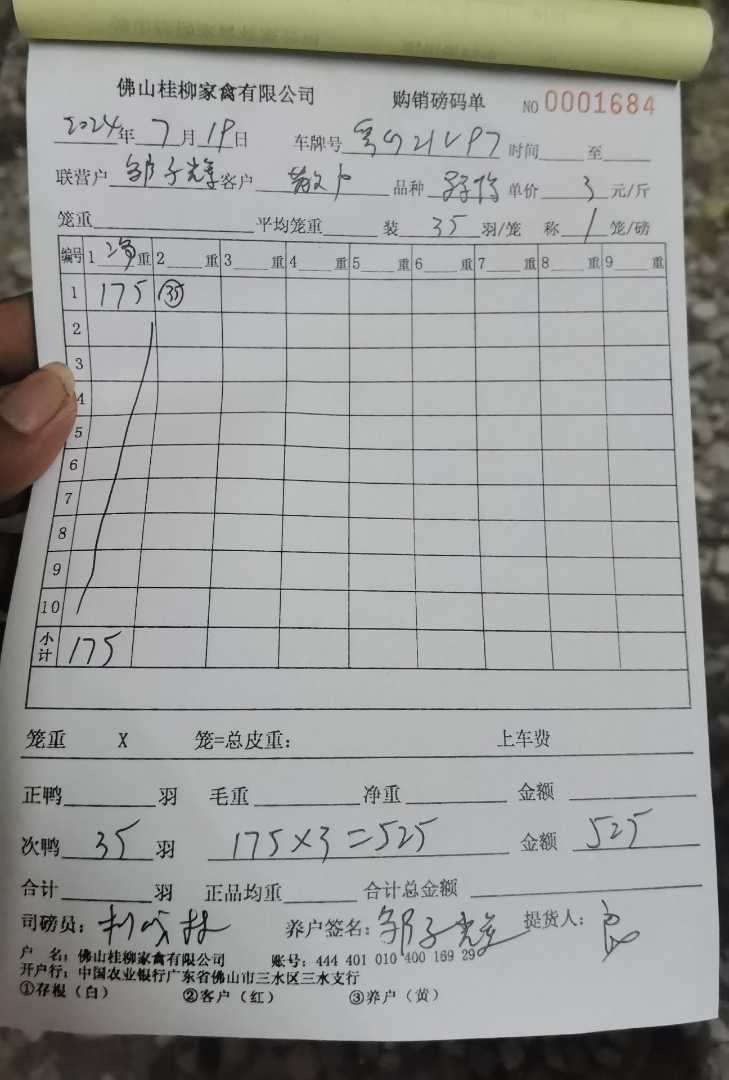 佛山桂柳家禽有限公司 购销磅码单 NO 0001684
2024年 7月 19日 车牌号 时间 至
联营户 邹子光 客户 散户 品种 单价 3 元/斤
笼重 平均笼重 装 35 羽/笼 称 1 笼/磅
编号 1 净 重 2 重 3 重 4 重 5 重 6 重 7 重 8 重 9 重
1 175 35
2
3
4
5
6
7
8
9
10
小计 175
笼重 X 笼=总皮重: 上车费
正鸭 羽 毛重 净重 金额
次鸭 35 羽 175×3=525 金额 525
合计 羽 正品均重 合计总金额
司磅员: 养户签名: 邹子 提货人:
户 名: 佛山桂柳家禽有限公司 账号: 444 401 010 400 169 29
开户行: 中国农业银行广东省佛山市三水区三水支行
①存根(白) ②客户(红) ③养户(黄)